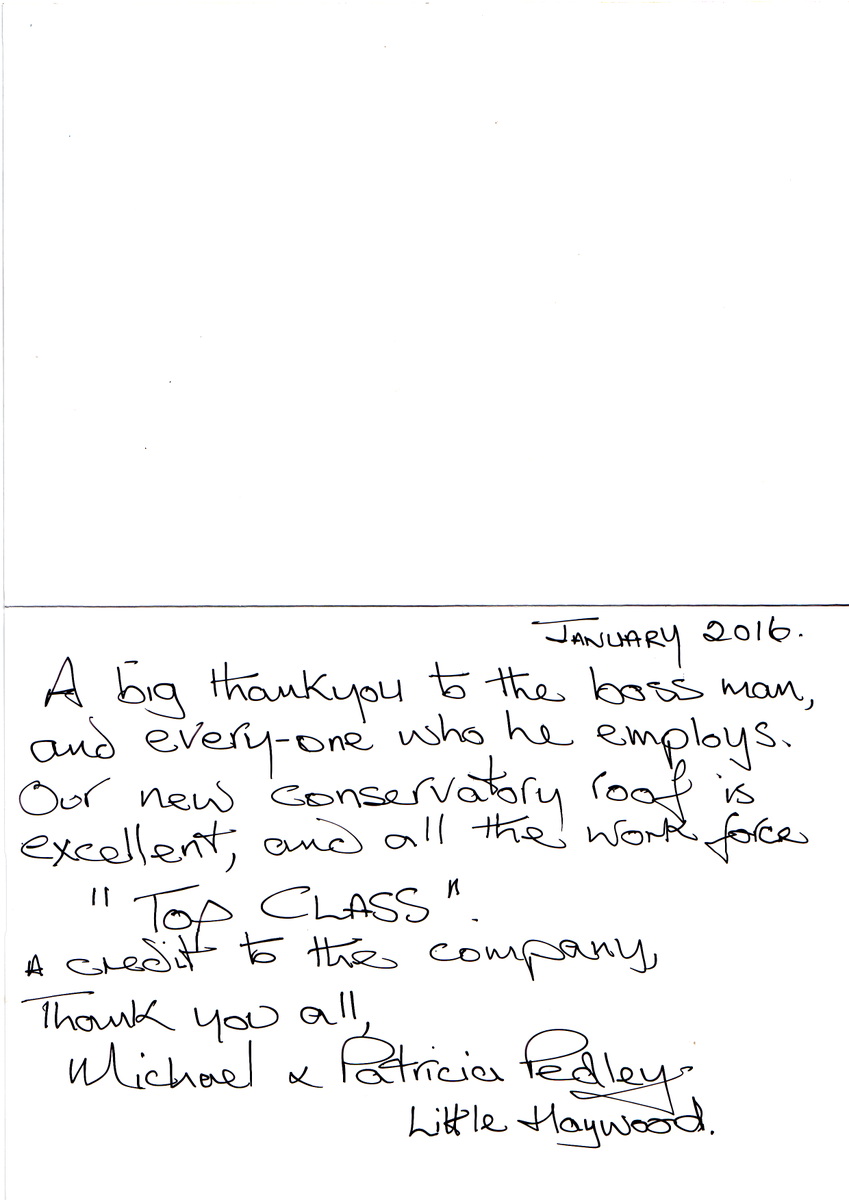 JANUARY 2016.
A big thankyou to the boss man,
and every-one who he employs.
Our new conservatory roof is
excellent, and all the work force
"TOP CLASS".
A credit to the company,
Thank you all,
Michael & Patricia Pedley
Little Haywood.